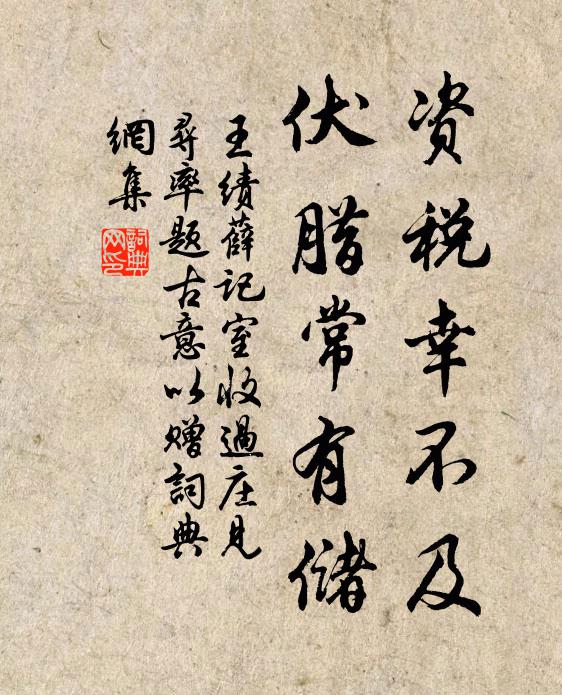 资税幸不及
伏腊常有储
王绩薛记室收过庄见
寻率题古意以赠词典
網集
詞典
网印